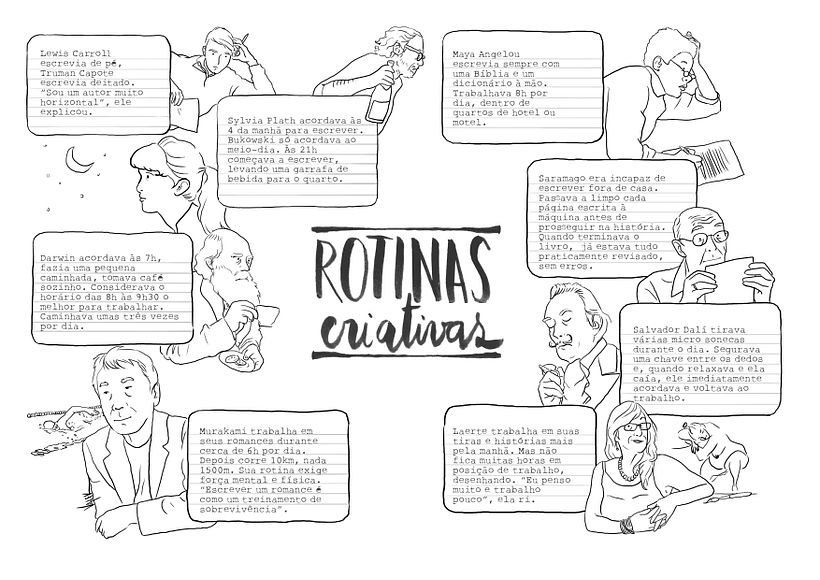 Lewis Carroll
escrevia de pé,
Truman Capote
escrevia deitado.
"Sou um autor muito
horizontal", ele
explicou.
Sylvia Plath acordava às
4 da manhã para escrever.
Bukowski só acordava ao
meio-dia. Às 21h
começava a escrever,
levando uma garrafa de
bebida para o quarto.
Darwin acordava às 7h,
fazia uma pequena
caminhada, tomava café
sozinho. Considerava o
horário das 8h às 9h30 o
melhor para trabalhar.
Caminhava umas três vezes
por dia.
Murakami trabalha em
seus romances durante
cerca de 6h por dia.
Depois corre 10km, nada
1500m. Sua rotina exige
força mental e física.
"Escrever um romance é
como um treinamento de
sobrevivência".
ROTINAS
criativas
Maya Angelou
escrevia sempre com
uma Bíblia e um
dicionário à mão.
Trabalhava 8h por
dia, dentro de
quartos de hotel ou
motel.
Saramago era incapaz de
escrever fora de casa.
Passava a limpo cada
página escrita à
máquina antes de
prosseguir na história.
Quando terminava o
livro, já estava tudo
praticamente revisado,
sem erros.
Salvador Dalí tirava
várias micro sonecas
durante o dia. Segurava
uma chave entre os dedos
e, quando relaxava e ela
caía, ele imediatamente
acordava e voltava ao
trabalho.
Laerte trabalha em suas
tiras e histórias mais
pela manhã. Mas não
fica muitas horas em
posição de trabalho,
desenhando. "Eu penso
muito e trabalho
pouco", ela ri.